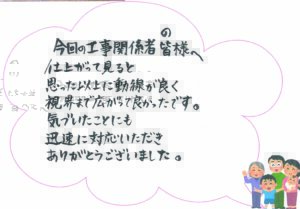 今回の工事関係者の皆様へ
仕上がって見ると
思った以上に動線が良く
視界まで広がって良かったです。
気づいたことにも
迅速に対応いただき
ありがとうございました。